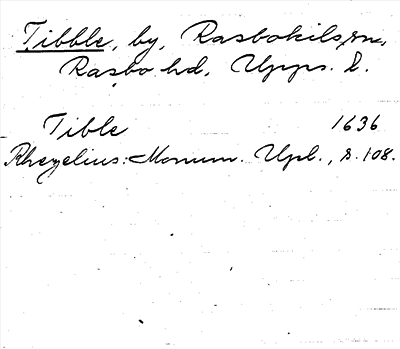 Tibble, by, Rasbokils sn,
Rasbo hd, Upps. l.
Tible 1636
Rhezelius: Monum. Upl., s. 108.